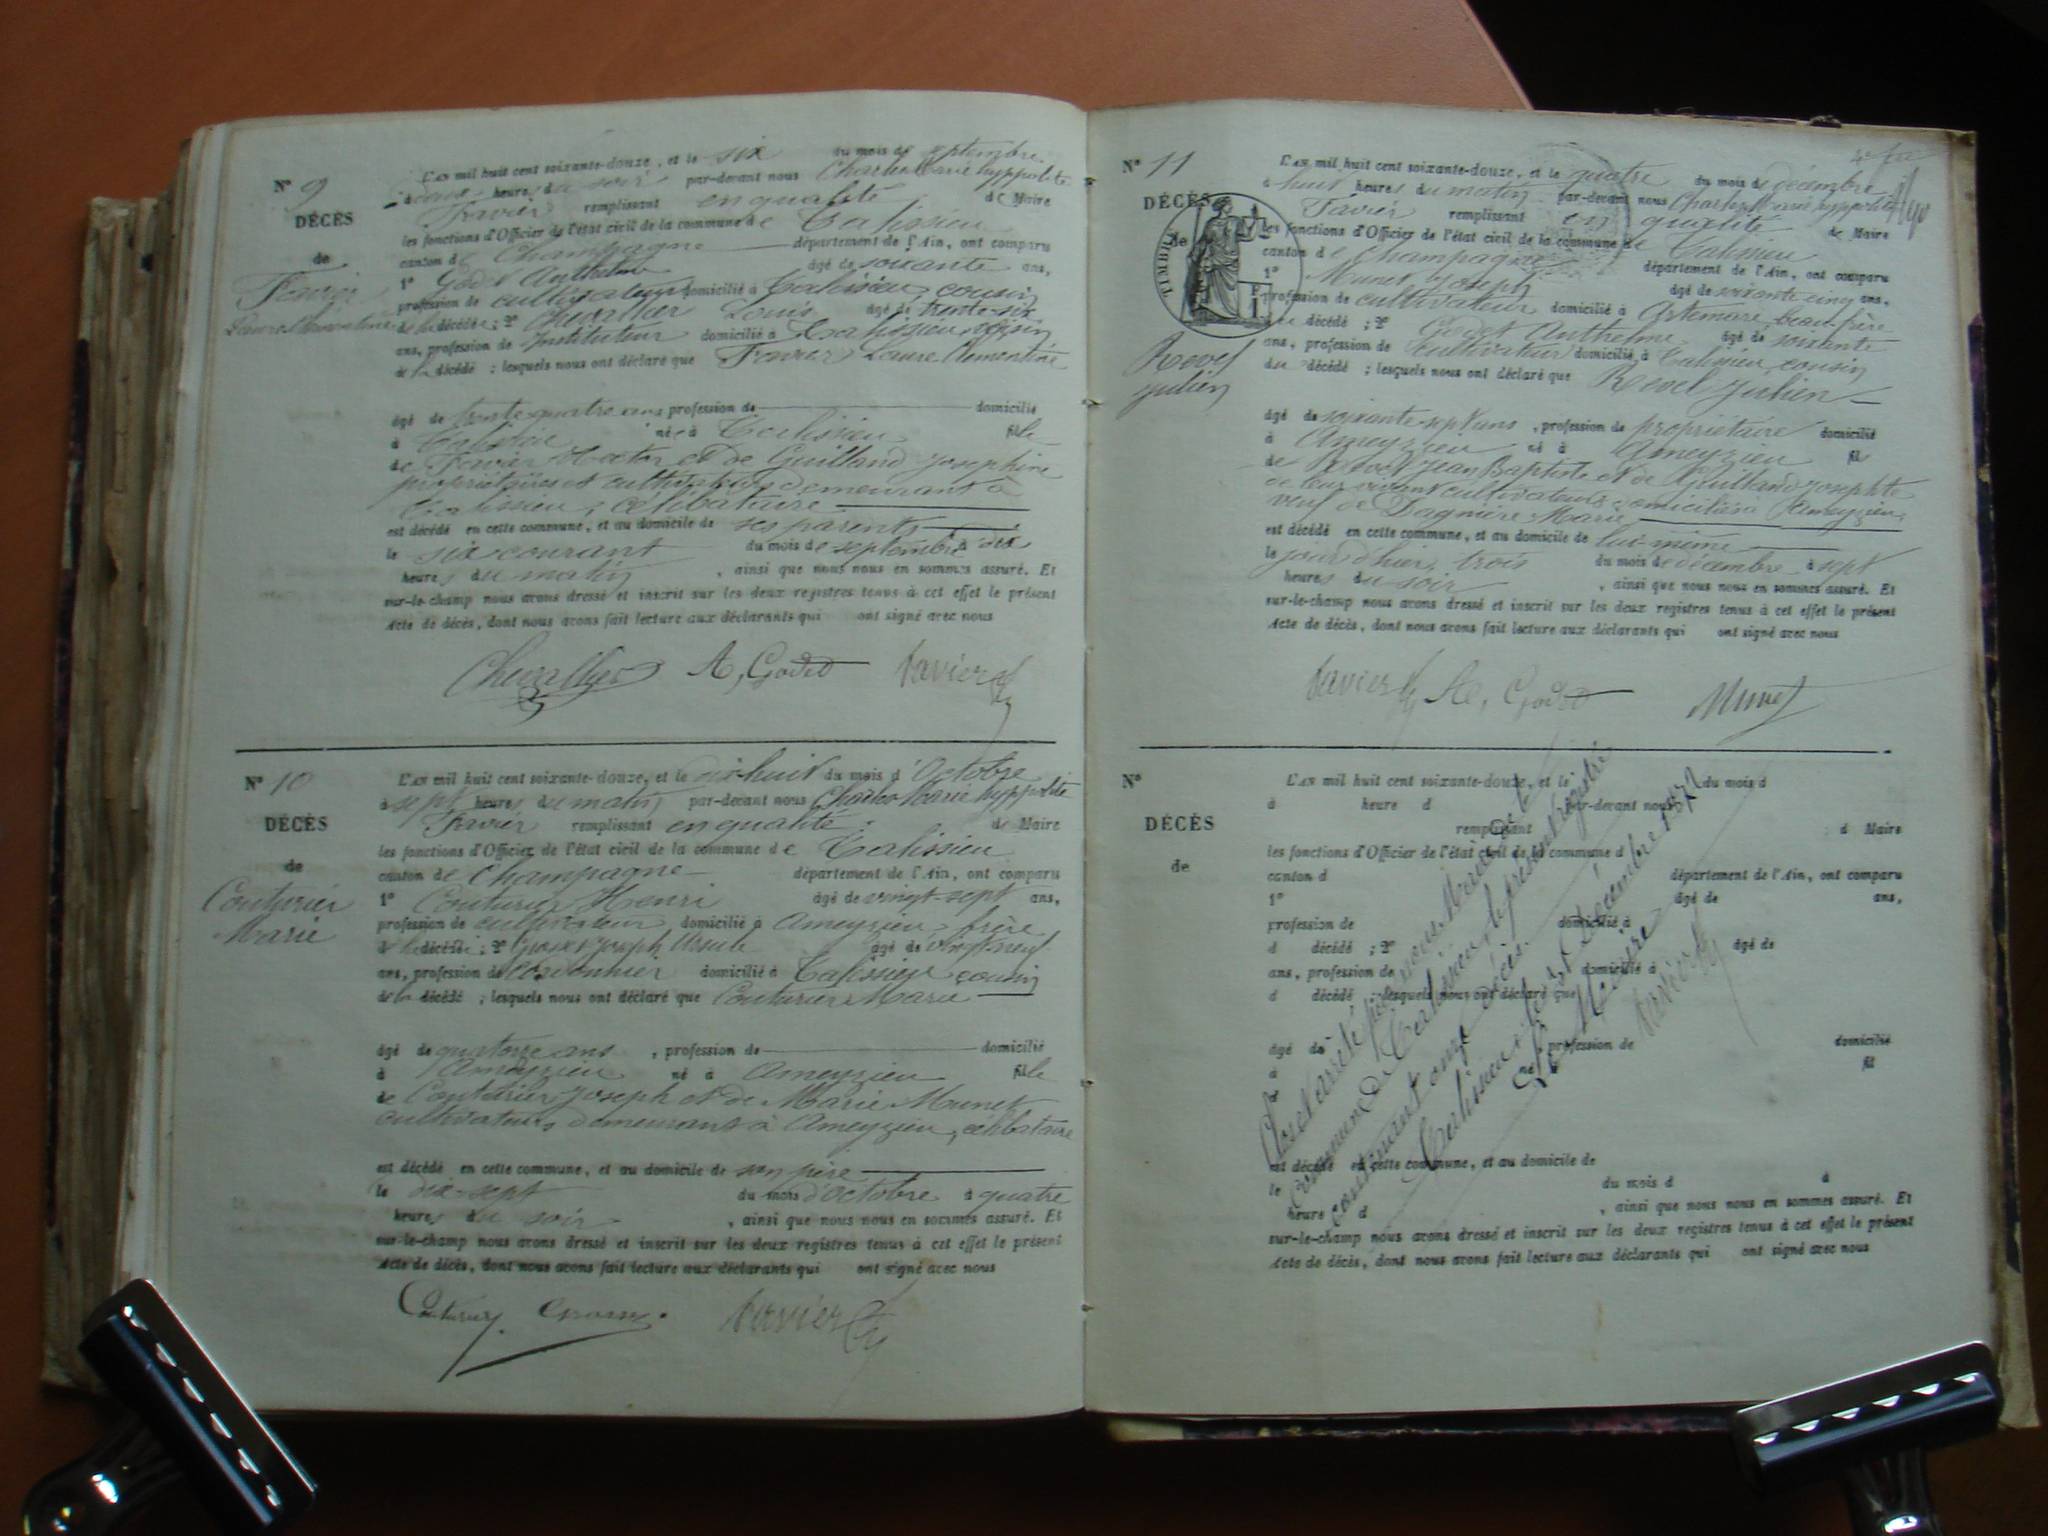 N° 9
DÉCÈS
de
Favier
Laure Clémentine
L'AN mil huit cent soixante-douze, et le six du mois de septembre
à deux heures du soir par-devant nous Charles Marie hyppolite
Favier remplissant en qualité de Maire
les fonctions d'Officier de l'état civil de la commune de Talissieu
canton de Champagne département de l'Ain, ont comparu
1° Godet Anthelme âgé de soixante ans,
profession de cultivateur domicilié à Talissieu, cousin
de la décédée ; 2° Chevallier Louis âgé de trente-six
ans, profession de Instituteur domicilié à Talissieu, voisin
de la décédé ; lesquels nous ont déclaré que Favier Laure Clémentine
âgé de trente quatre ans profession de domicilié
à Talissieu née à Talissieu fille
de Favier et de Guilland Josephine
propriétaires et cultivateurs demeurant à
Talissieu, célibataire
est décédé en cette commune, et au domicile de ses parents
le six courant du mois de septembre à dix
heures du matin , ainsi que nous nous en sommes assuré. Et
sur-le-champ nous avons dressé et inscrit sur les deux registres tenus à cet effet le présent
Acte de décès, dont nous avons fait lecture aux déclarants qui ont signé avec nous
Chevallier A, Godet Favier
N° 10
DÉCÈS
de
Couturier
Marie
L'AN mil huit cent soixante-douze, et le dix-huit du mois d'Octobre
à sept heures du matin par-devant nous Charles Marie hyppolite
Favier remplissant en qualité de Maire
les fonctions d'Officier de l'état civil de la commune de Talissieu
canton de Champagne département de l'Ain, ont comparu
1° Couturier Henri âgé de vingt-sept ans,
profession de cultivateur domicilié à Ameyzieu, frère
de la décédé ; 2° Joseph âgé de vingt neuf
ans, profession de cordonnier domicilié à Talissieu cousin
de la décédé ; lesquels nous ont déclaré que Couturier Marie
âgé de quatorze ans , profession de domicilié
à Ameyzieu né à Ameyzieu fille
de Couturier Joseph et de Marie Munet
cultivateurs demeurant à Ameyzieu, célibataire
est décédé en cette commune, et au domicile de son père
le dix-sept du mois d'octobre à quatre
heures du soir , ainsi que nous nous en sommes assuré. Et
sur-le-champ nous avons dressé et inscrit sur les deux registres tenus à cet effet le présent
Acte de décès, dont nous avons fait lecture aux déclarants qui ont signé avec nous
Couturier Favier
N° 11
DÉCÈS
de
TIMBRE
Revel
Julien
L'AN mil huit cent soixante-douze, et le quatre du mois de décembre
à huit heures du matin par-devant nous Charles Marie hyppolite
Favier remplissant en qualité de Maire
les fonctions d'Officier de l'état civil de la commune de Talissieu
canton de Champagne département de l'Ain, ont comparu
1° Munet Joseph âgé de soixante cinq ans,
profession de cultivateur domicilié à Artemare, beau-frère
du décédé ; 2° Godet Anthelme âgé de soixante
ans, profession de cultivateur domicilié à Talissieu, cousin
du décédé ; lesquels nous ont déclaré que Revel Julien
âgé de soixante-sept ans , profession de propriétaire domicilié
à Ameyzieu né à Ameyzieu fil
de Revel Jean Baptiste et de Guilland Josephte
de leur vivant cultivateurs domiciliés à Ameyzieu,
veuf de Dagnière Marie
est décédé en cette commune, et au domicile de lui-même
le jour d'hier, trois du mois de décembre à sept
heures du soir , ainsi que nous nous en sommes assuré. Et
sur-le-champ nous avons dressé et inscrit sur les deux registres tenus à cet effet le présent
Acte de décès, dont nous avons fait lecture aux déclarants qui ont signé avec nous
Favier A, Godet Munet
N°
DÉCÈS
de
L'AN mil huit cent soixante-douze, et le du mois d
à heure d par-devant nous
remplissant d Maire
les fonctions d'Officier de l'état civil de la commune d
canton d département de l'Ain, ont comparu
1° âgé de ans,
profession de domicilié à
d décédé ; 2° âgé de
ans, profession de domicilié à
d décédé ; lesquels nous ont déclaré que
âgé de , profession de domicilié
à né à fil
de
est décédé en cette commune, et au domicile de
le du mois d à
heure d , ainsi que nous nous en sommes assuré. Et
sur-le-champ nous avons dressé et inscrit sur les deux registres tenus à cet effet le présent
Acte de décès, dont nous avons fait lecture aux déclarants qui ont signé avec nous
Clos et arrêté par nous Maire de la
Commune de Talissieu, le présent registre
contenant onze décès.
Talissieu, le 31 Décembre 1872
Le Maire
Favier